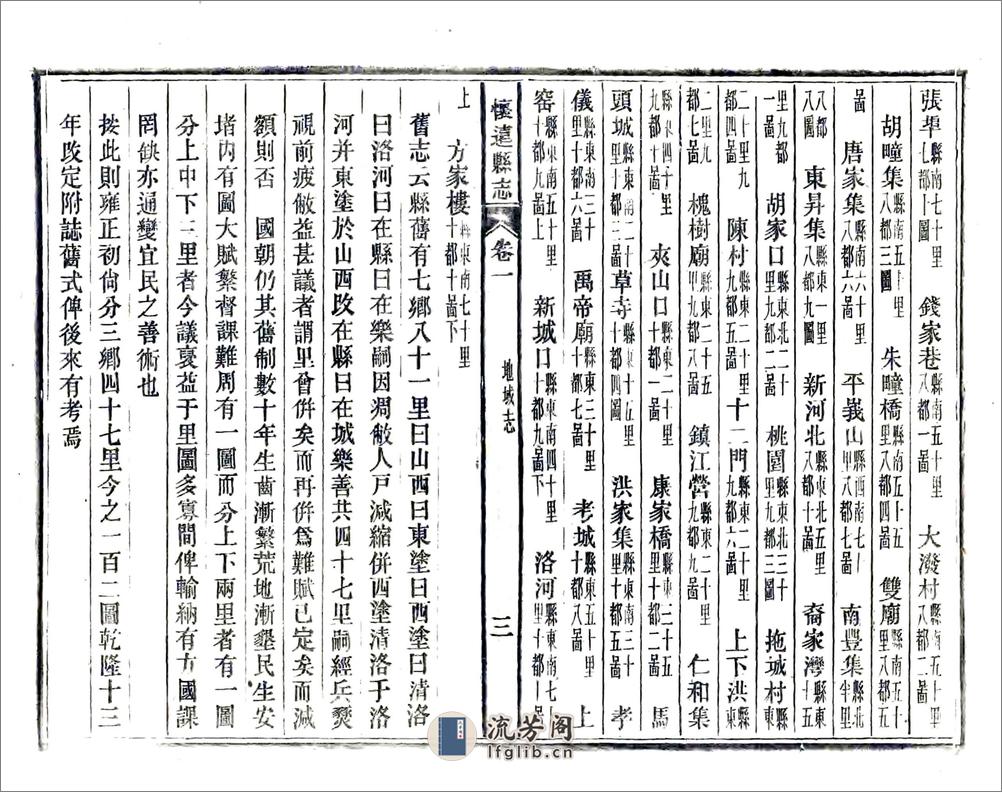 張埠縣南七十里七都十圖 錢家巷縣南五十里八都一啚 大潑村縣南五十里八都二啚
胡疃集縣南五十里八都三圖 朱疃橋縣南五十五里八都四啚 雙廟縣南五十里八都五
啚 唐家集縣南六十里八都六啚 平義山縣西南七十里八都七啚 南豐集縣北半里
八都八圖 東昇集縣東一里八都九圖 新河北縣東北五里八都十啚 裔家灣縣東十五
里九都一圖 胡家口縣東北二十里九都二啚 桃園縣東北三十里九都三圖 拖城村縣東
二十里九都四啚 陳村縣東二十里九都五啚 十二門縣東二十里九都六啚 上下洪縣東
二十里九都七啚 槐樹廟縣東二十五里九都八啚 鎮江營縣東二十里九都九啚 仁和集
縣東四十里九都十啚 夾山口縣東二十里十都一啚 康家橋縣東三十五里十都二啚 馬
頭城縣東南二十里十都三啚 草寺縣東十五里十都四圖 洪家集縣東南三十里十都五啚 孝
儀縣東三十里十都六啚 禹帝廟縣東三十里十都七啚 老城縣東五十里十都八啚 上
窑縣東南五十里十都九啚上 新城口縣東南四十里十都九啚下 洛河縣東南七十里十都十啚
懷遠縣志 卷一 地域志 三
上 方家樓縣東南七十里十都十啚下
舊志云縣舊有七鄉八十一里曰山西曰東塗曰西塗曰清洛
曰洛河曰在縣曰在樂嗣因凋敝人戸減縮併西塗清洛于洛
河并東塗於山西改在縣曰在城樂善共四十七里嗣經兵燹
視前疲敝益甚議者謂里曾併矣而再併爲難賦已定矣而減
額則否 國朝仍其舊制數十年生齒漸繁荒地漸墾民生安
堵內有圖大賦繁督課難周有一圖而分上下兩里者有一圖
分上中下三里者今議裒益于里圖多寡間俾輸納有方國課
罔缺亦通變宜民之善術也
按此則雍正初尙分三鄉四十七里今之一百二圖乾隆十三
年改定附誌舊式俾後來有考焉
流芳阁
lfglib.cn